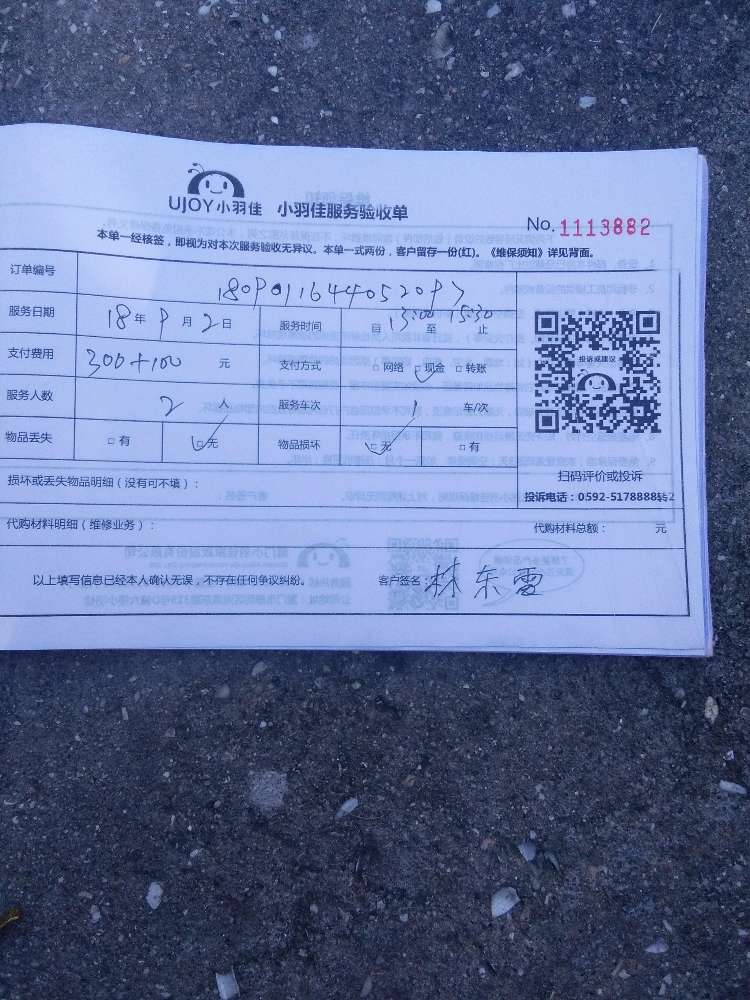 UJOY小羽佳 小羽佳服务验收单
No. 1113882
本单一经核签，即视为对本次服务验收无异议。本单一式两份，客户留存一份(红)。《维保须知》详见背面。
订单编号
服务日期 18年 9月 2日 服务时间 自 13:00 至 15:30 止
支付费用 300+100 元 支付方式 □网络 □现金 □转账
服务人数 2 人 服务车次 1 车/次
物品丢失 □有 □无 物品损坏 □无 □有
投诉或建议
扫码评价或投诉
投诉电话：0592-5178888转2
损坏或丢失物品明细（没有可不填）：
代购材料明细（维修业务）： 代购材料总额： 元
以上填写信息已经本人确认无误，不存在任何争议纠纷。 客户签名：林东雷